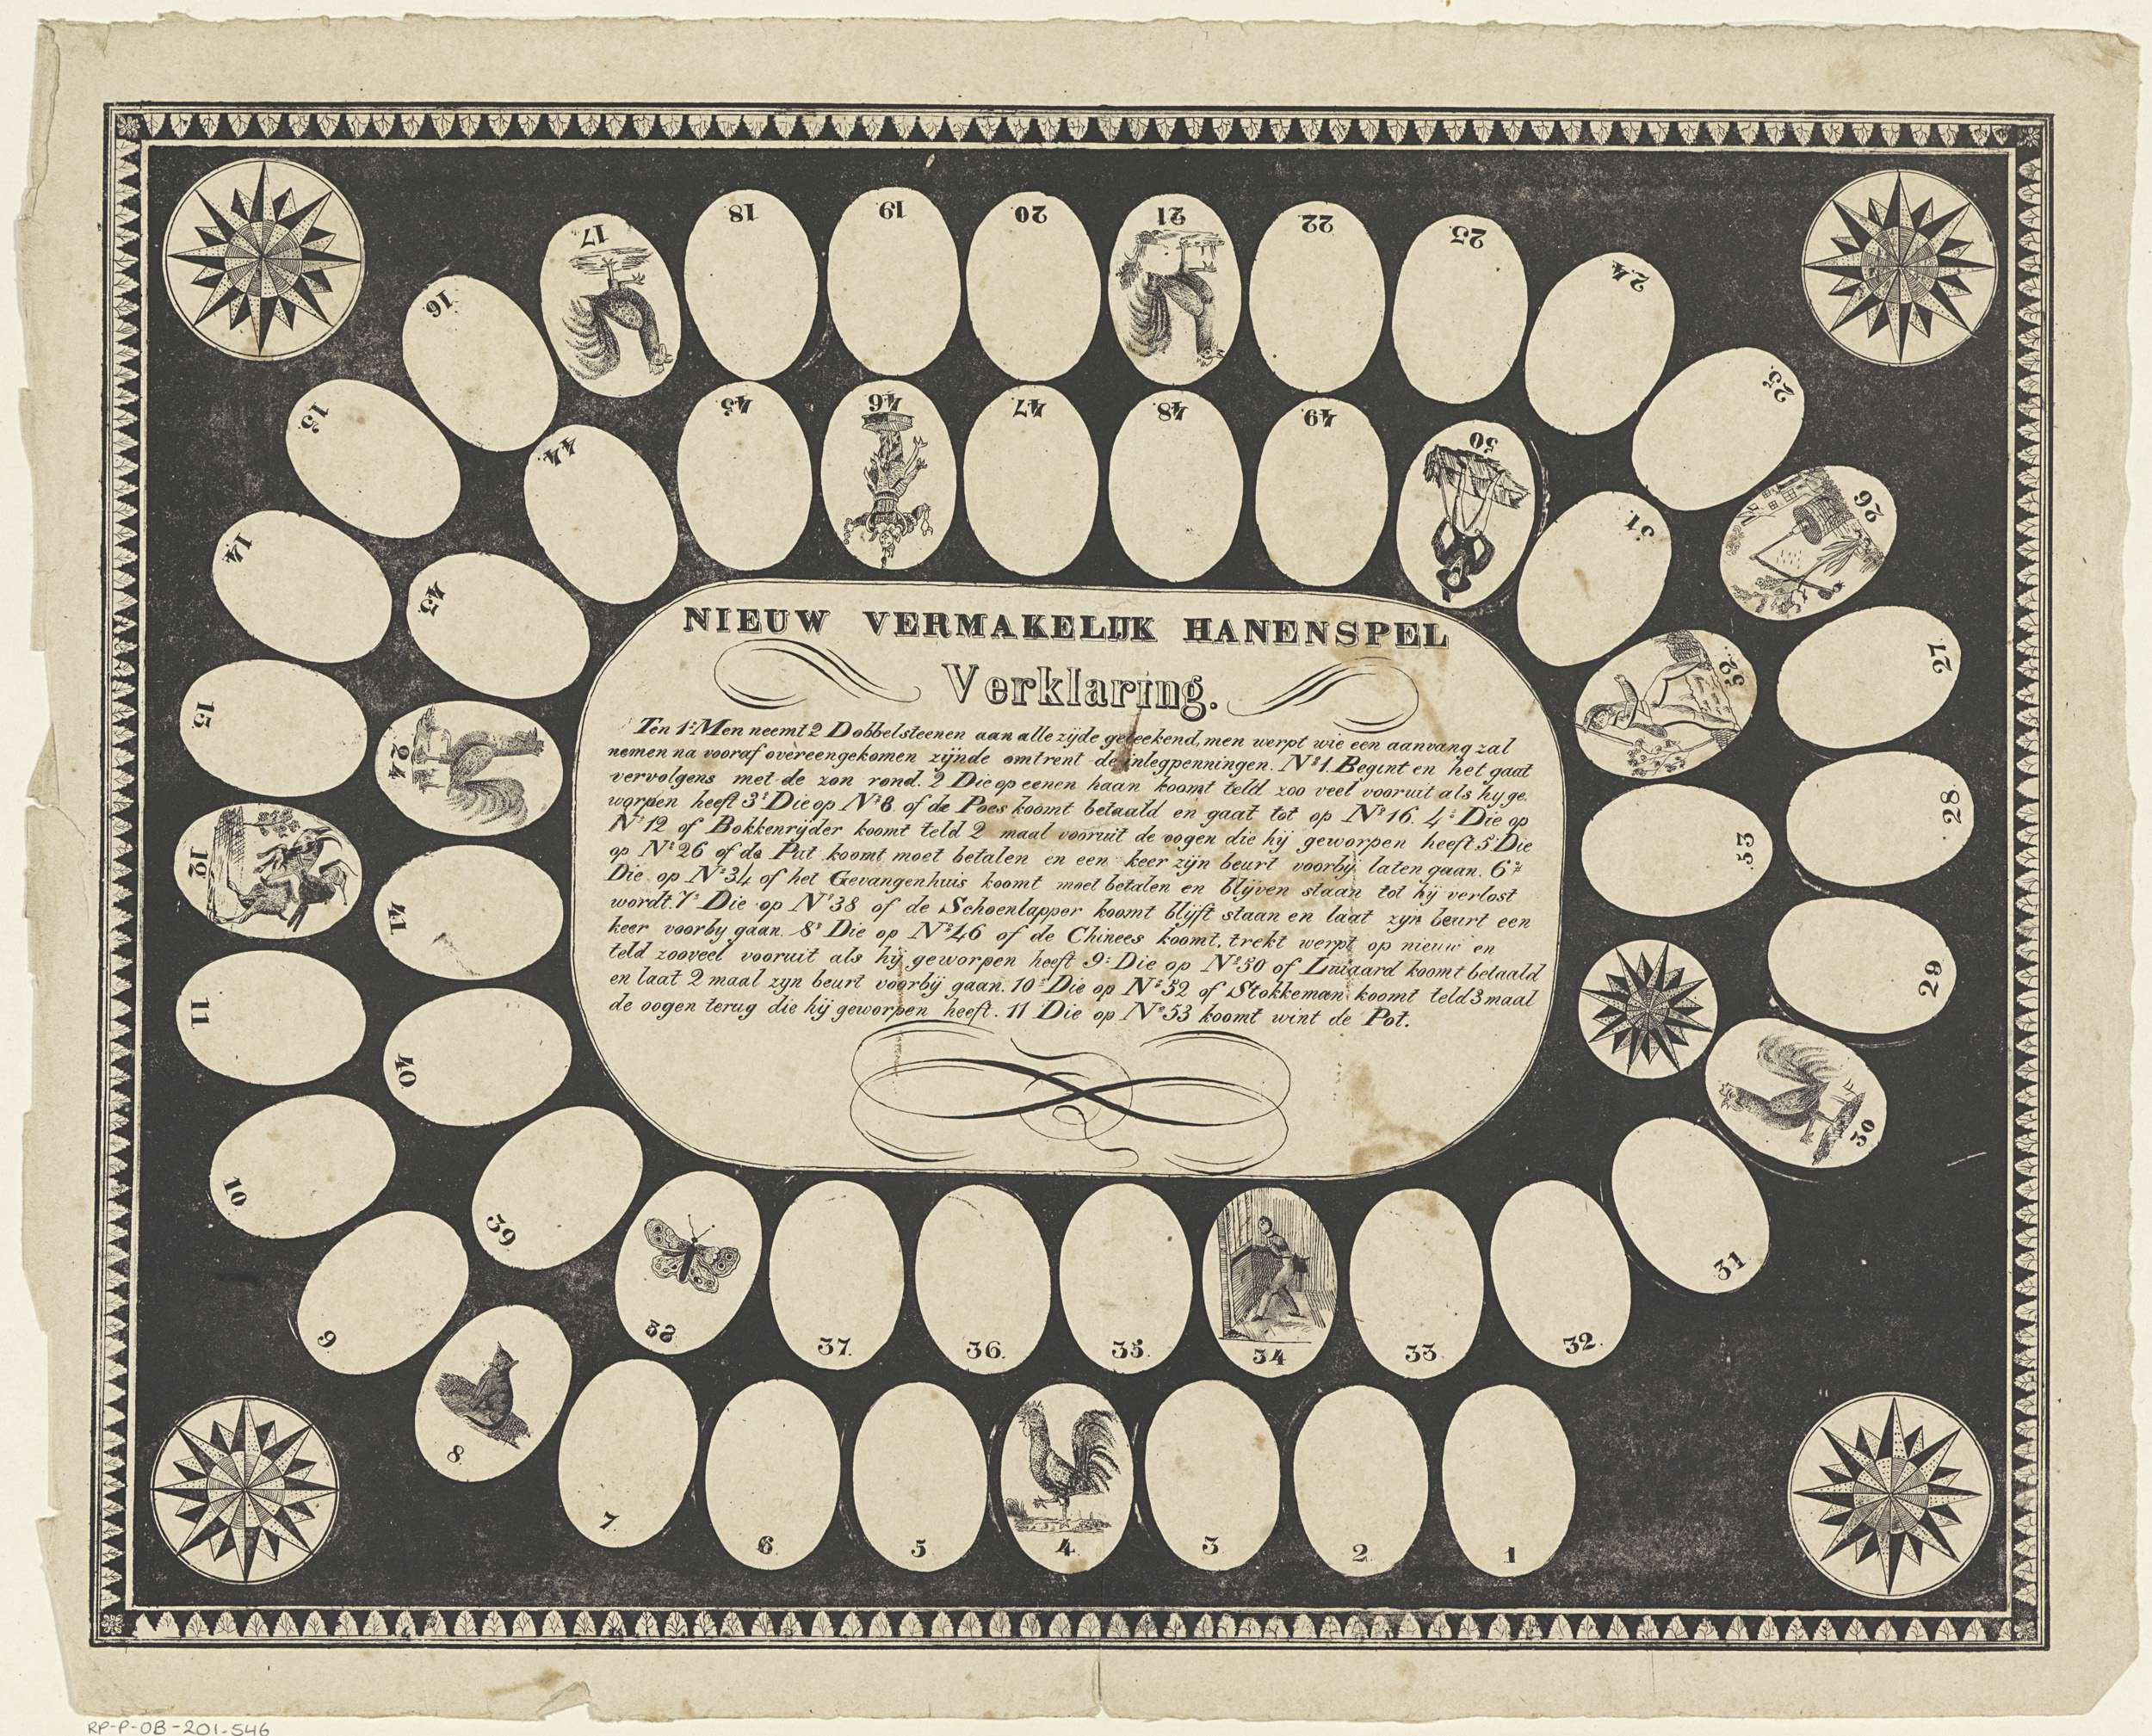 NIEUW VERMAKELIJK HANENSPEL
Verklaring.
Ten 1e Men neemt 2 Dobbelsteenen aan alle zijde geteekend, men werpt wie een aanvang zal
nemen na vooraf overeengekomen zijnde omtrent de inlegpenningen. No 1 Begint en het gaat
vervolgens met de zon rond. 2 Die op eenen haan koomt teld zoo veel vooruit als hy ge
worpen heeft 3e Die op No 8 of de Poes koomt betaald en gaat tot op No 16. 4e Die op
No 12 of Bokkenrijder koomt teld 2 maal vooruit de oogen die hij geworpen heeft 5 Die
op No 26 of de Put koomt moet betalen en een keer zijn beurt voorbij laten gaan. 6e
Die op No 34 of het Gevangenhuis koomt moet betalen en blijven staan tot hij verlost
wordt. 7e Die op No 38 of de Schoenlapper koomt blijft staan en laat zyn beurt een
keer voorby gaan. 8e Die op No 46 of de Chinees koomt, trekt werpt op nieuw en
teld zooveel vooruit als hij geworpen heeft 9e Die op No 50 of koomt betaald
en laat 2 maal zyn beurt voorbij gaan. 10e Die op No 52 of Stokkeman koomt teld 3 maal
de oogen terug die hij geworpen heeft. 11 Die op No 53 koomt wint de Pot.
1
2
3
4
5
6
7
8
9
10
11
12
13
14
15
16
17
18
19
20
21
22
23
24
25
26
27
28
29
30
31
32
33
34
35
36
37
38
39
40
41
24
43
44
45
46
47
48
49
50
51
52
53
RP-P-OB-201.546